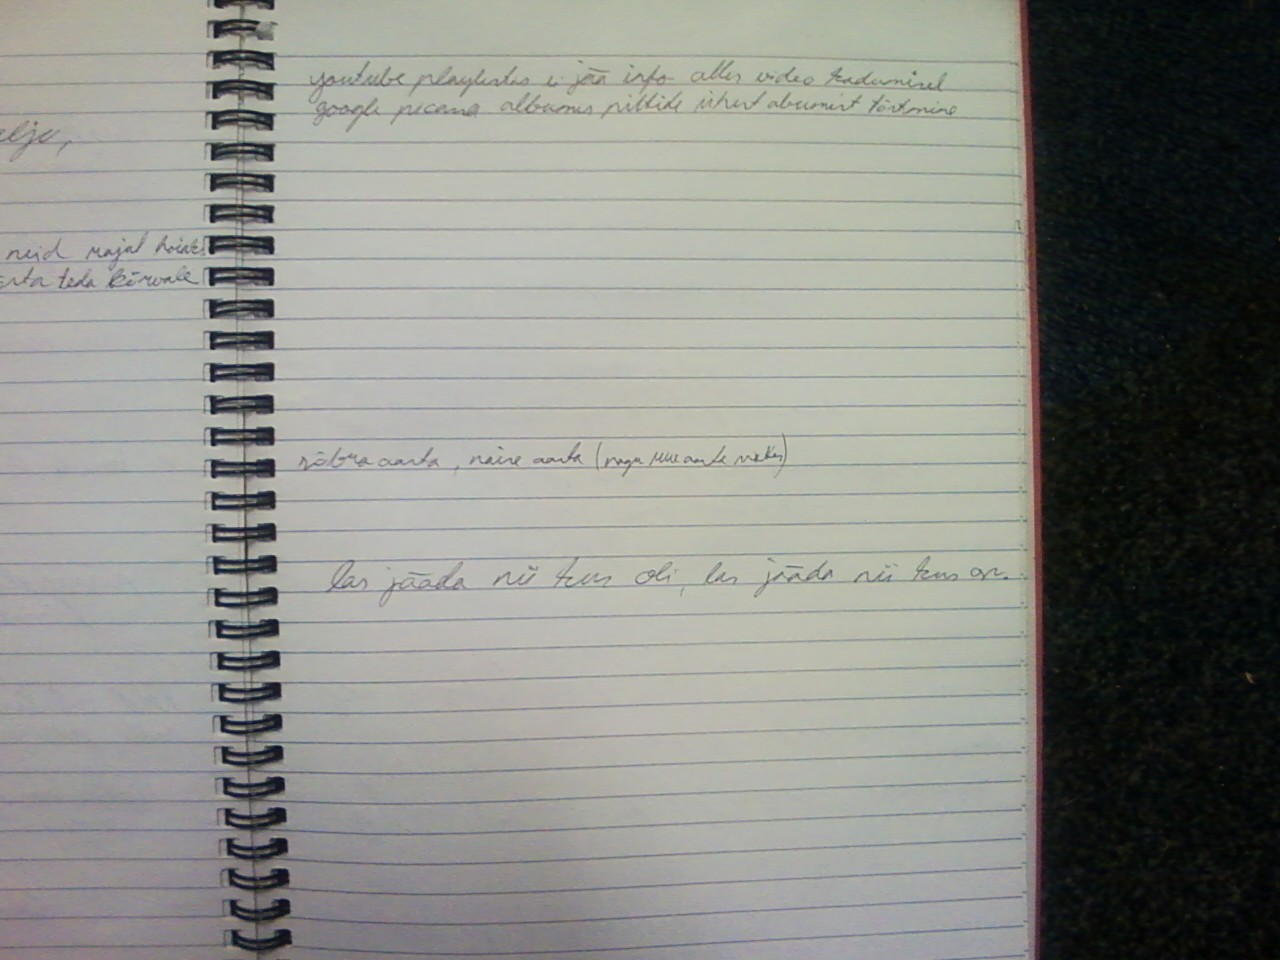 elju,
neid najal hoida
teda kõrvale
youtube playlistis ei jää info alles video kadumisel
google picasa albumis piltide ühest albumist tõstmine
sõbra aasta, naise aasta (nagu
las jääda nii kus oli, las jääda nii kus on.